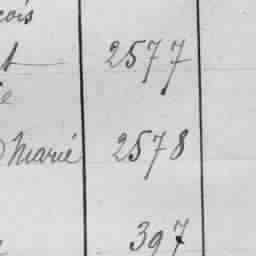 cois
t 2577
e
Marié 2578
397